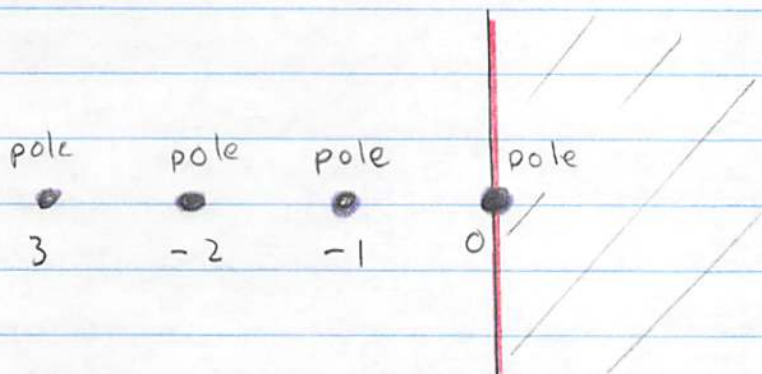 pole pole pole pole
3 -2 -1 0